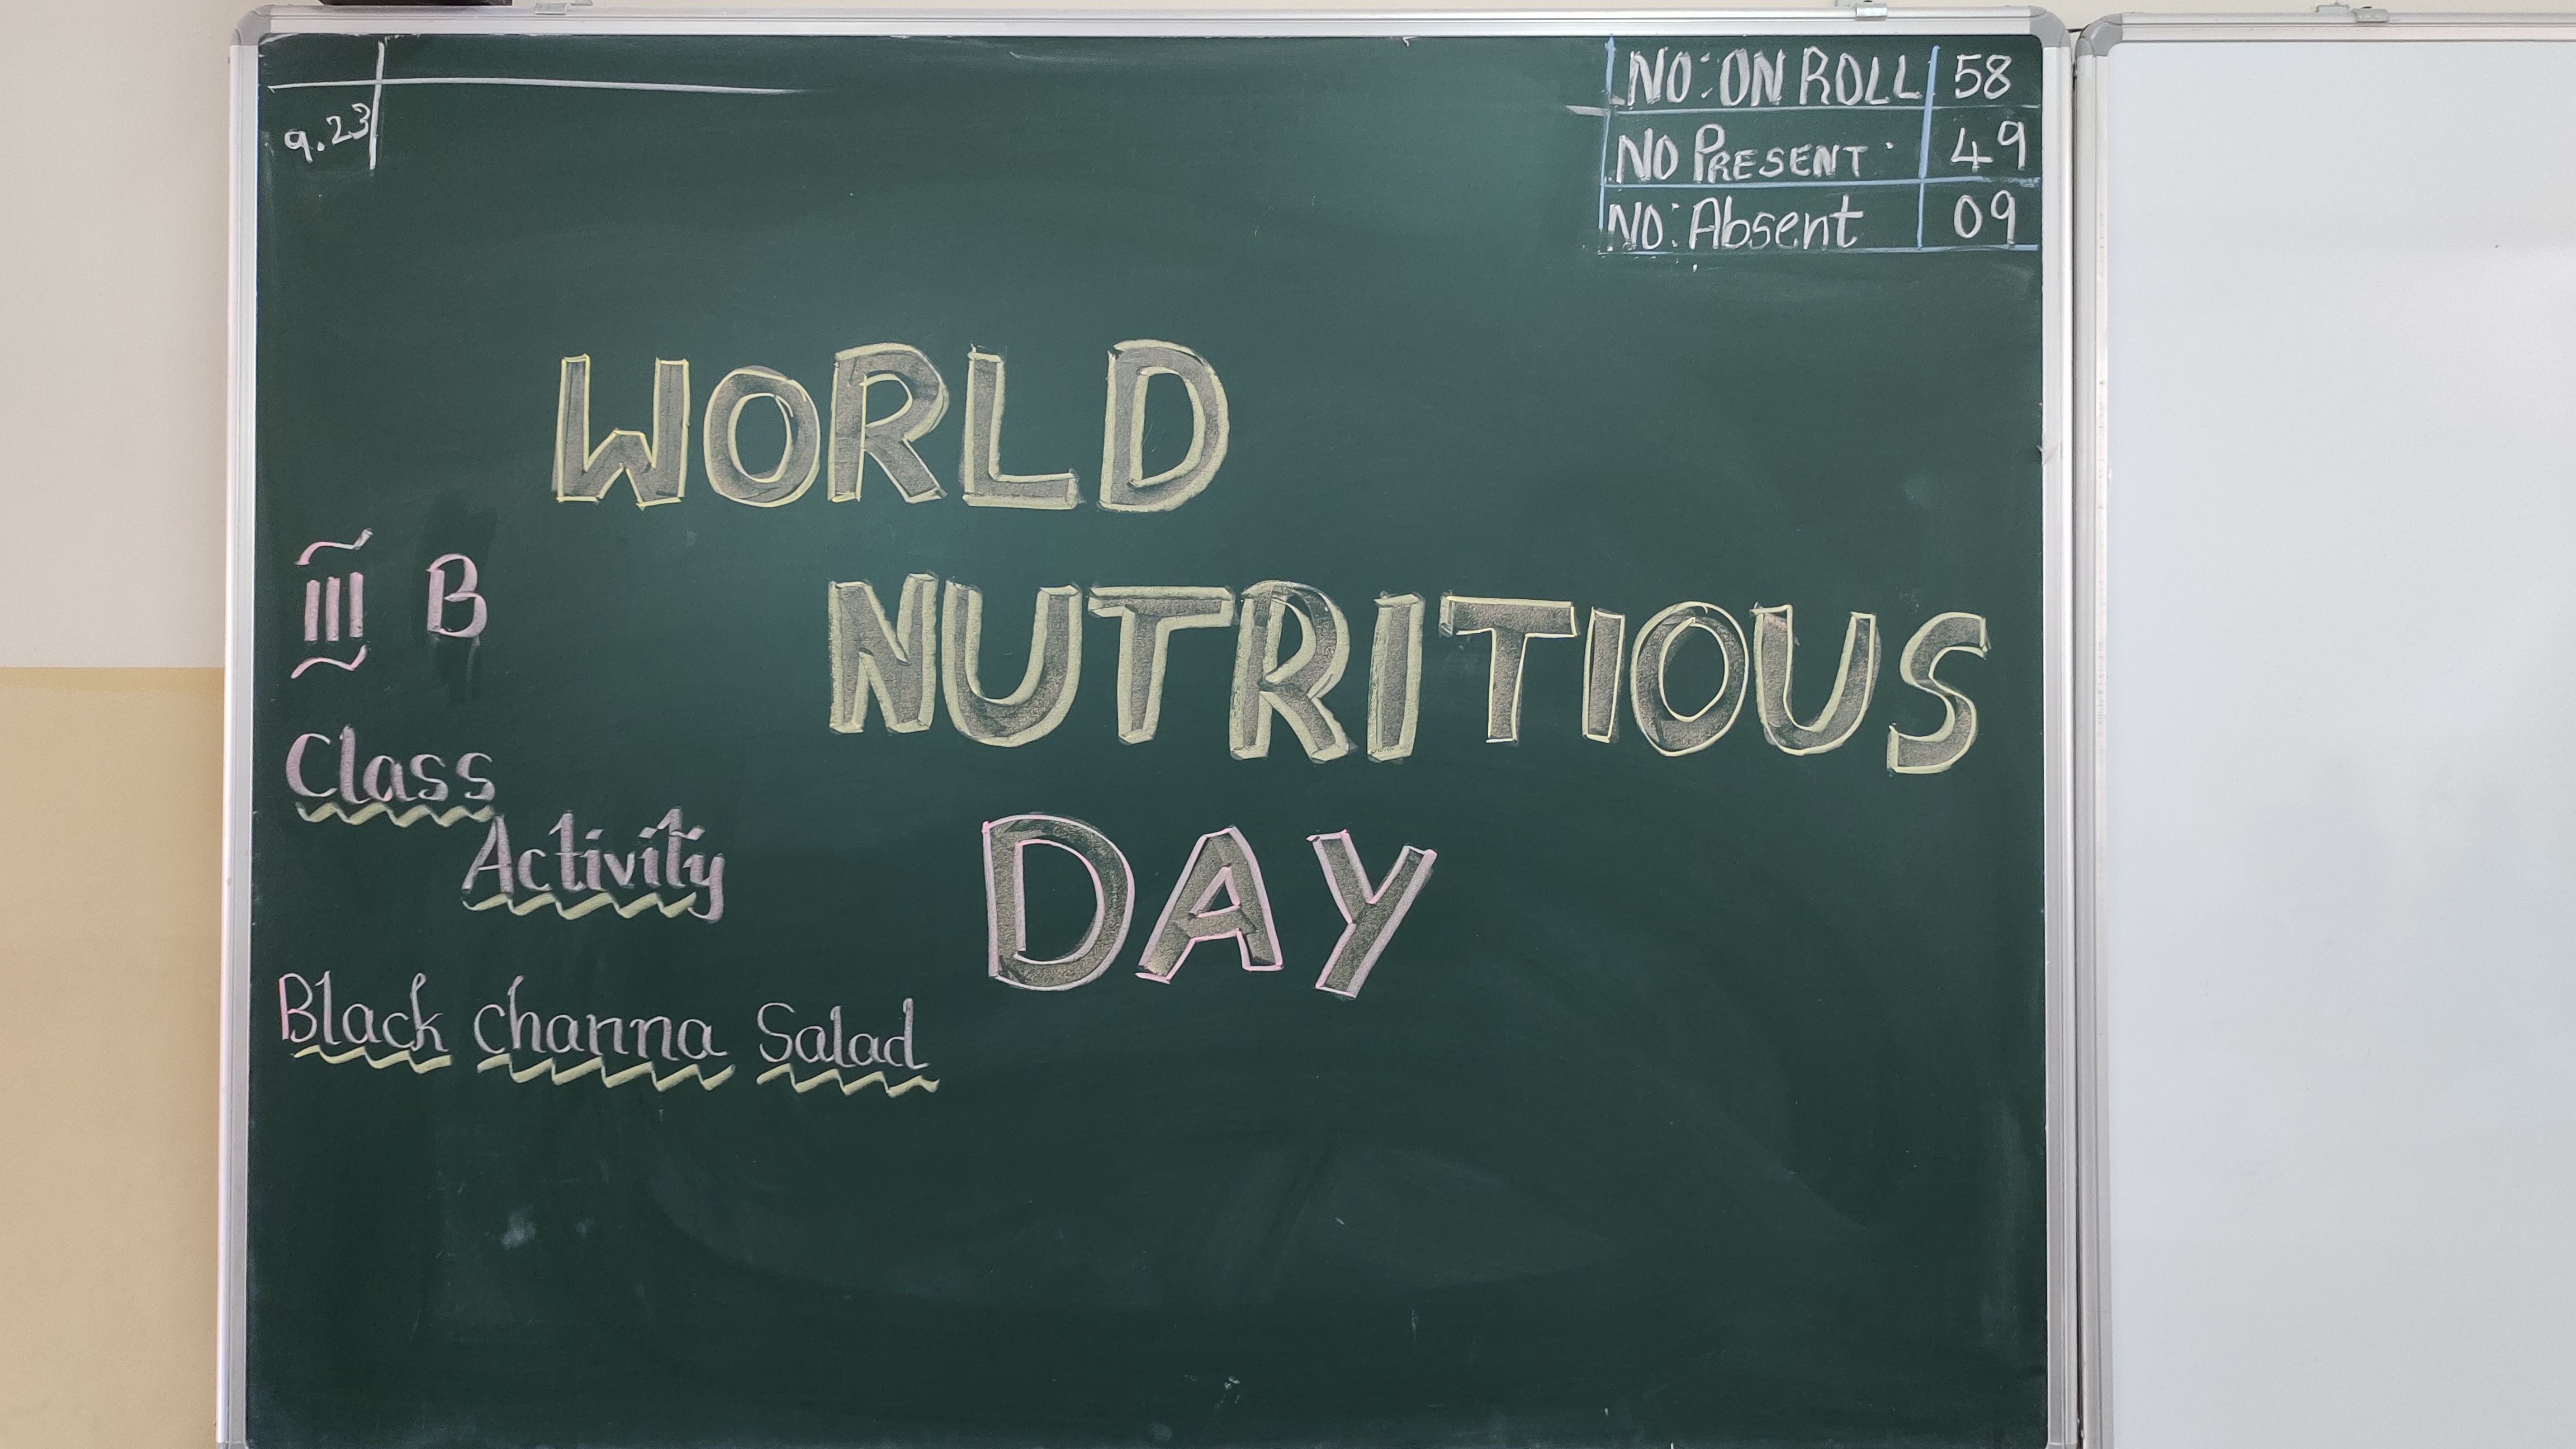 9.23
NO: ON ROLL 58
NO PRESENT. 49
NO: Absent 09
WORLD
NUTRITIOUS
DAY
III B
Class
Activity
Black channa Salad